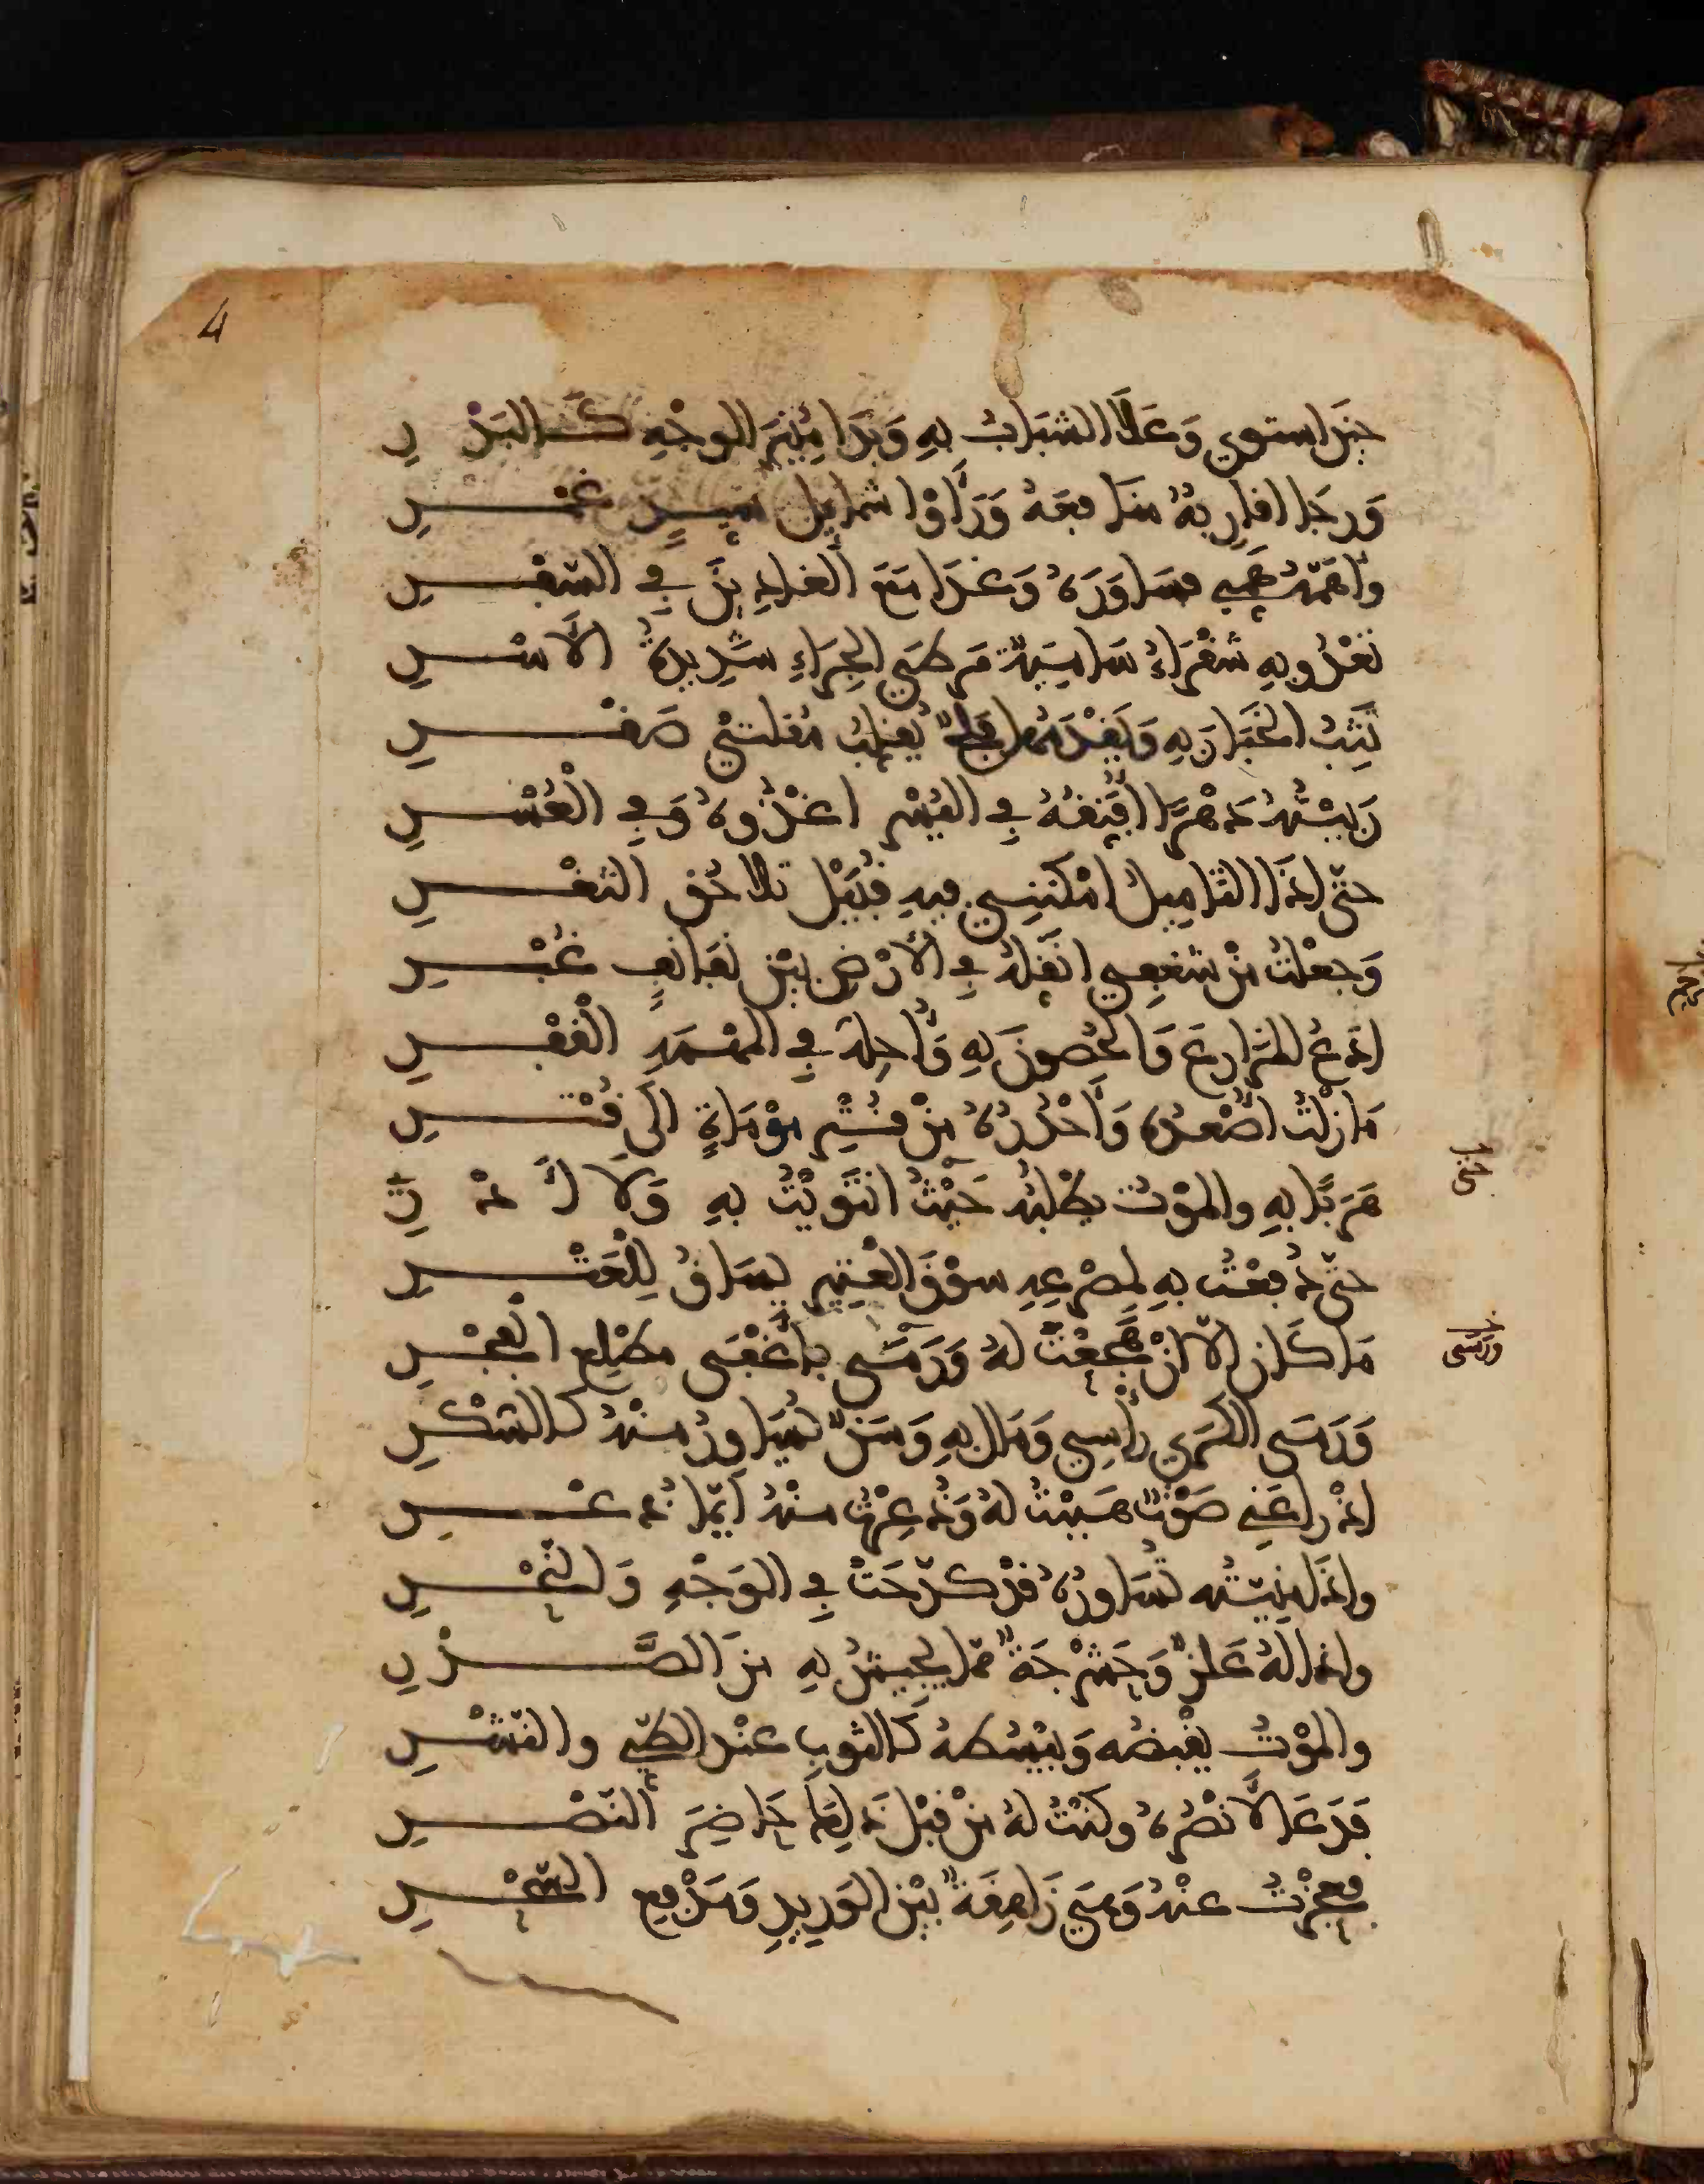 4
حتى استوى وَعَلَا الشبابُ بِهِ وَبَدَا مُنِيرَ الوجْهِ كَالبَدْرِ
وَرجَا اقاربُهُ منَافِعَهُ وَرَأَوْا شمايل سيدٍ غمْرِ
وأَهَمَّهُ هَمِّي فسَاوَرَهُ وَغدَا مَعَ الغادِينَ فِي السّفْرِ
تغْدُو بِهِ شقْرَاءُ سَامِيَةٌ مَرطَى الجِرَاءِ شَدِيدَةُ الأَسْرِ
تَثِبُ الخَبَارَ بِهِ وَيَقْدُمُهَا فَلجٌ يُقلِّبُ مُقلتَيْ صَقْرِ
رَبيْتُهُ دَهْرًا افَتِّقُهُ فِي اليُسْرِ اغْذُوهُ وَفِي الْعُسْرِ
حتّى اذَا التَّامِيلُ امْكنَنِي فيهِ قُبَيْلَ تلاحُقِ الثغْرِ
وَجعلْتُ مِنْ شغفِي انَقِّلُهُ فِي الأَرْضِ بيْن تنَايِفٍ غُبْرِ
ادَعُ المزَارِعَ وَالحُصونَ بِهِ وَأُحِلُّهُ فِي المهْمَهِ الْقَفْرِ
مَا زلْتُ اصْعدُهُ وَأَحْدُرُهُ مِنْ قتْرِ مَوْمَاةٍ الَى قُتْرِ
هَرَبًا بِهِ والموْتُ يطْلبُهُ حَيْثُ انتَوَيْتُ بِهِ وَلَا أَدْرِي
حتّى
حتّى دَفعْتُ بِهِ لمصْرَعِهِ سوْقَ الْعَتِيرِ يُسَاقُ لِلْعَتْرِ
مَا كَان الَّا انْ هَجعْتُ لَهُ وَرَمَى بِأَغْفَى مطْلِع الفَجْرِ
وَرَمَى
وَرَمَى الكَرَى رأْسِي وَمَال بِهِ وَسَنٌ يُسَاوِرُ منْهُ كالسّكْرِ
اذْ راعَنِي صَوْتٌ هَببْتُ لَهُ وَذُعِرْتُ منْهُ أَيَّمَا ذعْرِ
واذَا مَنِيّتُه تُسَاوِرُهُ قدْ كدّحَتْ فِي الوَجْهِ وَالنّحْرِ
واذا لَهُ عَلَزٌ وَحَشْرَجَةٌ ممّا يَجِيشُ بِهِ مِنَ الصَّدْرِ
والموْتُ يقْبضُه وَيبْسُطُهُ كالثوبِ عنْد الطّيِّ والنّشْرِ
فَدَعَا لأَنْصُرَهُ وكنْتُ لَهُ مِنْ قَبْل ذَلِكَ حَاضِرَ النّصْرِ
فعجزْتُ عنْهُ وَهيَ زَاهِقَةٌ بيْن الوَرِيدِ وَمَدْفعِ السّحْرِ